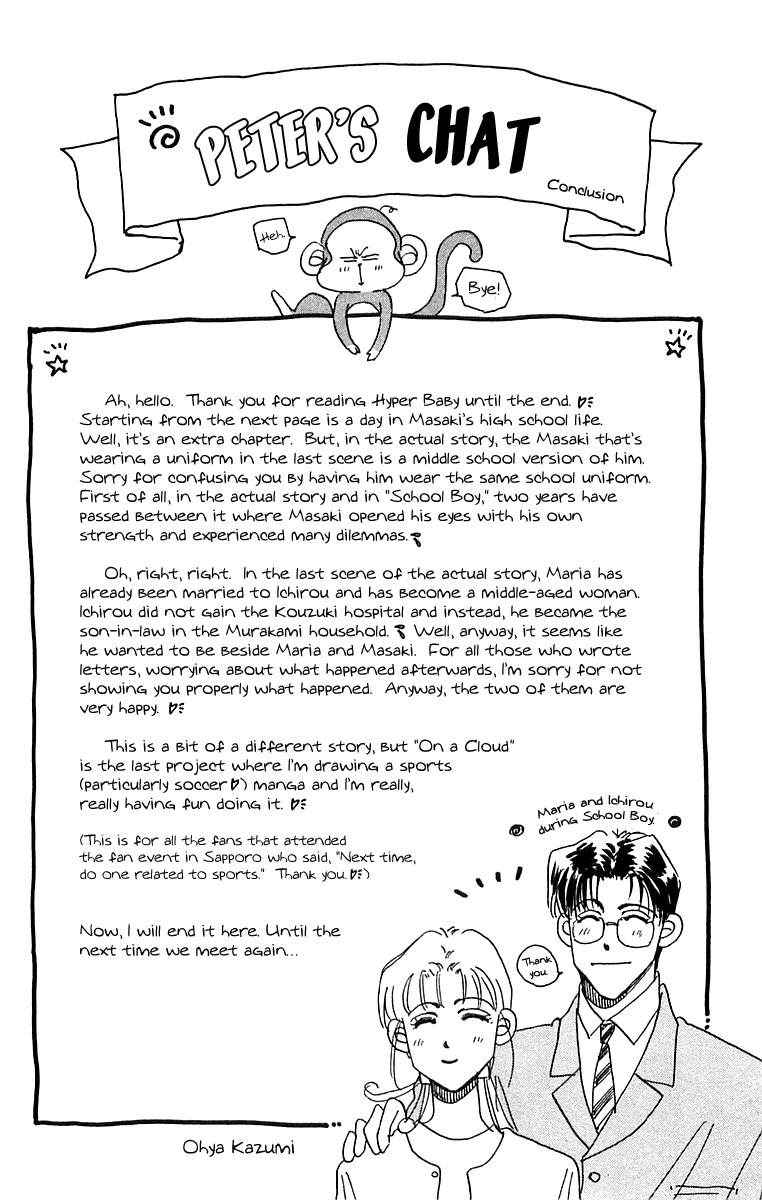 PETER'S CHAT
Conclusion
Heh.
Bye!
Ah, hello. Thank you for reading Hyper Baby until the end.
Starting from the next page is a day in Masaki's high school life.
Well, it's an extra chapter. But, in the actual story, the Masaki that's
wearing a uniform in the last scene is a middle school version of him.
Sorry for confusing you by having him wear the same school uniform.
First of all, in the actual story and in "School Boy," two years have
passed between it where Masaki opened his eyes with his own
strength and experienced many dilemmas.
Oh, right, right. In the last scene of the actual story, Maria has
already been married to Ichirou and has become a middle-aged woman.
Ichirou did not gain the Kouzuki hospital and instead, he became the
son-in-law in the Murakami household. Well, anyway, it seems like
he wanted to be beside Maria and Masaki. For all those who wrote
letters, worrying about what happened afterwards, I'm sorry for not
showing you properly what happened. Anyway, the two of them are
very happy.
This is a bit of a different story, but "On a Cloud"
is the last project where I'm drawing a sports
(particularly soccer) manga and I'm really,
really having fun doing it.
(This is for all the fans that attended
the fan event in Sapporo who said, "Next time,
do one related to sports." Thank you.)
Now, I will end it here. Until the
next time we meet again...
Maria and Ichirou
during School Boy.
Thank
you.
Ohya Kazumi